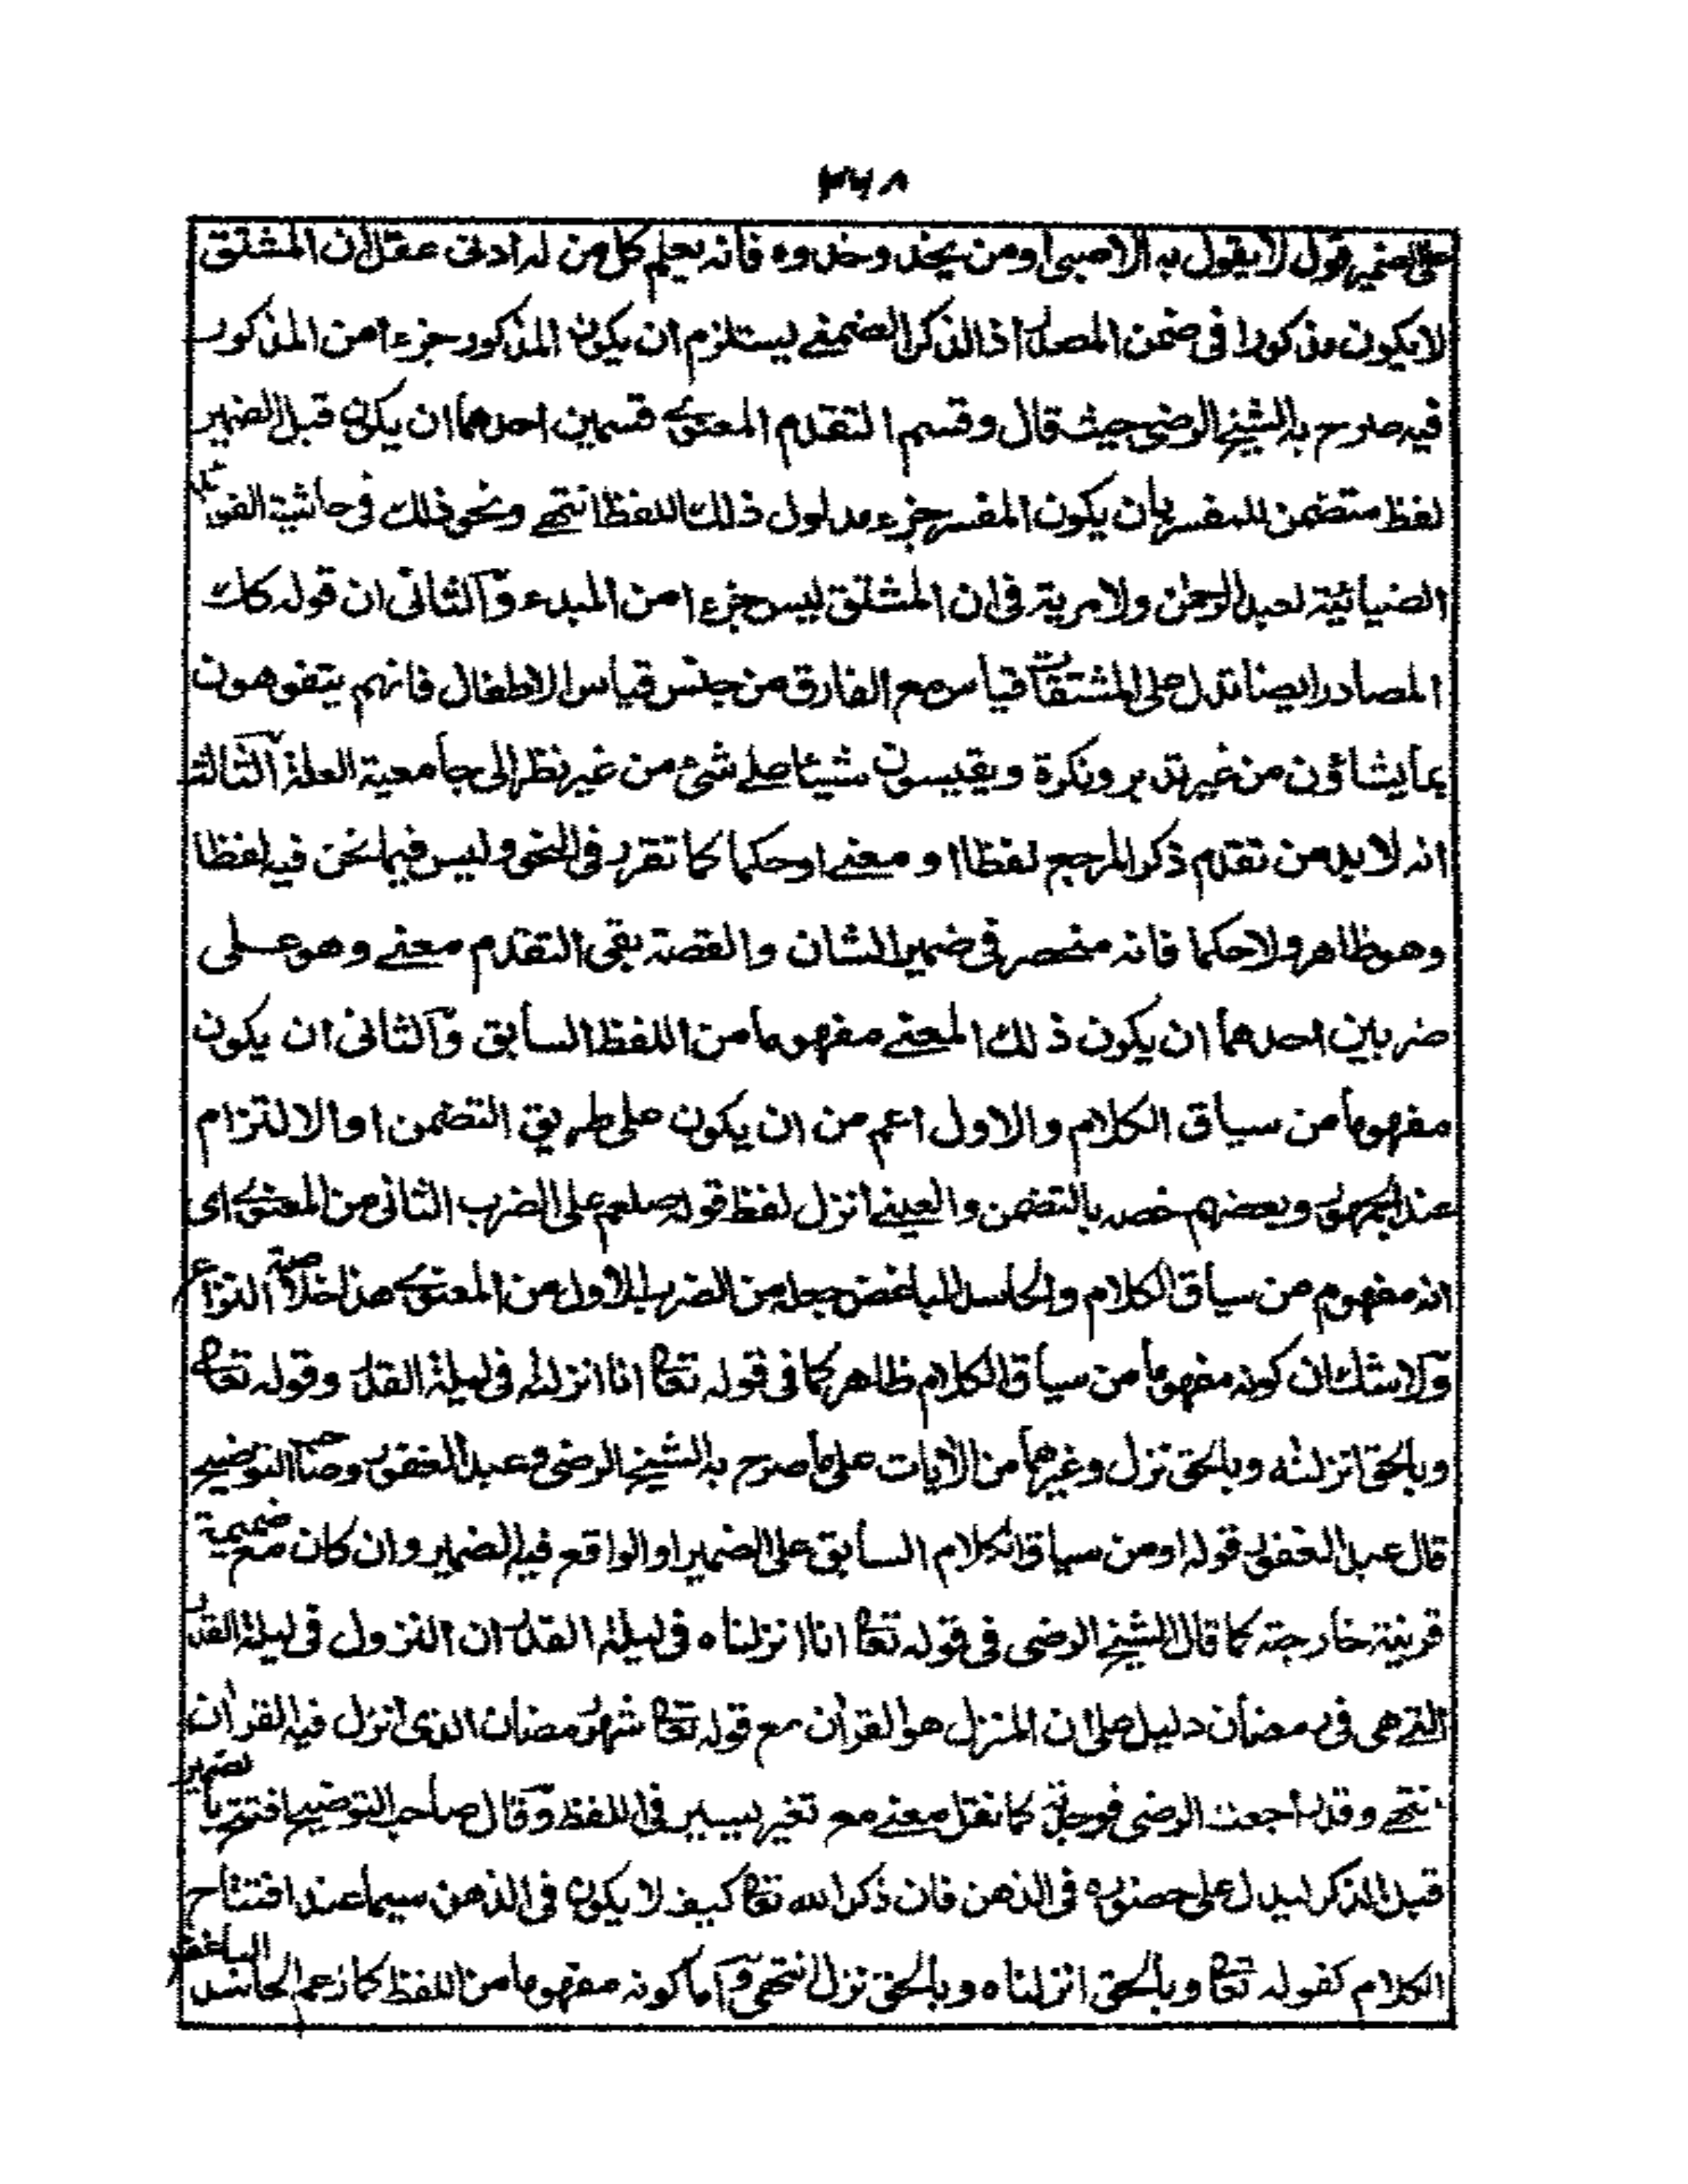 ٣٦٨
على الضمير قول لا يقول به الا صبى او من يحذ وحذوه فانه يعلم كل من له ادنى عقل ان المشتق
لا يكون مذكورا فى ضمن المصدر اذ الذكر الضمنے يستلزم ان يكون المذكور جزءا من المذكور
فيه صرح به الشيخ الرضى حيث قال وقسم التقدم المعنوے قسمين احدهما ان يكون قبل الضمير
لفظ متضمن للمفسر بأن يكون المفسر جزء مدلول ذلك اللفظ انتهے ونحو ذلك فى حاشية الفوائد
الضيائية لعبد الرحمن ولا مرية فى ان المشتق ليس جزءا من المبدء والثانى ان قوله كذلك
المصادر ايضا تدل على المشتقات قياس مع الفارق من جنس قياس الاطفال فانهم يتفوهون
بما يشاؤن من غير تدبر ونكرة ويقيسون شيئا على شئ من غير نظر الى جامعية العلة الثالث
انه لا بد من تقدم ذكر المرجع لفظا او معنے او حكما كما تقرر فى النحو وليس فيما نحن فيه لفظا
وهو ظاهر ولا حكما فانه منحصر فى ضمير الشان والقصة بقى التقدم معنے وهو على
ضربين احدهما ان يكون ذلك المعنے مفهوما من اللفظ السابق والثانى ان يكون
مفهوما من سياق الكلام والاول اعم من ان يكون على طريق التضمن او الالتزام
عند الجمهور وبعضهم خصه بالتضمن والعينے انزل لفظ قوله صلعم على الضرب الثانى من المعنوے اى
انه مفهوم من سياق الكلام والحاسد المباغض جعله من الضرب الاول من المعنوے هذا خلاصة النزاع
ولا شك ان كونه مفهوما من سياق الكلام ظاهر كما فى قوله تعا انا انزلنه فى ليلة القدر وقوله تعا
وبالحق انزلنه وبالحق نزل وغيرهما من الآيات على ما صرح به الشيخ الرضى وعبد الغفور وصاحب التوضيح
قال عبد الغفور قوله او من سياق الكلام السابق على الضمير او الواقع فيه الضمير وان كان مع ضميمة
قرينة خارجة كما قال الشيخ الرضى فى قوله تعا انا انزلناه فى ليلة القدر ان النزول فى ليلة القدر
التے هى فى رمضان دليل على ان المنزل هو القرآن مع قوله تعا شهر رمضان الذى انزل فيه القرآن
انتهے وقد راجعت الرضى فوجدته كما نقل معنے مع تغير يسير فى اللفظ وقال صاحب التوضيح افتتح بالضمير
قبل الذكر ليدل على حضوره فى الذهن فان ذكر الله تعا كيف لا يكون فى الذهن سيما عند افتتاح
الكلام كقوله تعا وبالحق انزلناه وبالحق نزل انتهى واما كونه مفهوما من اللفظ كما زعم الحاسد المباغض